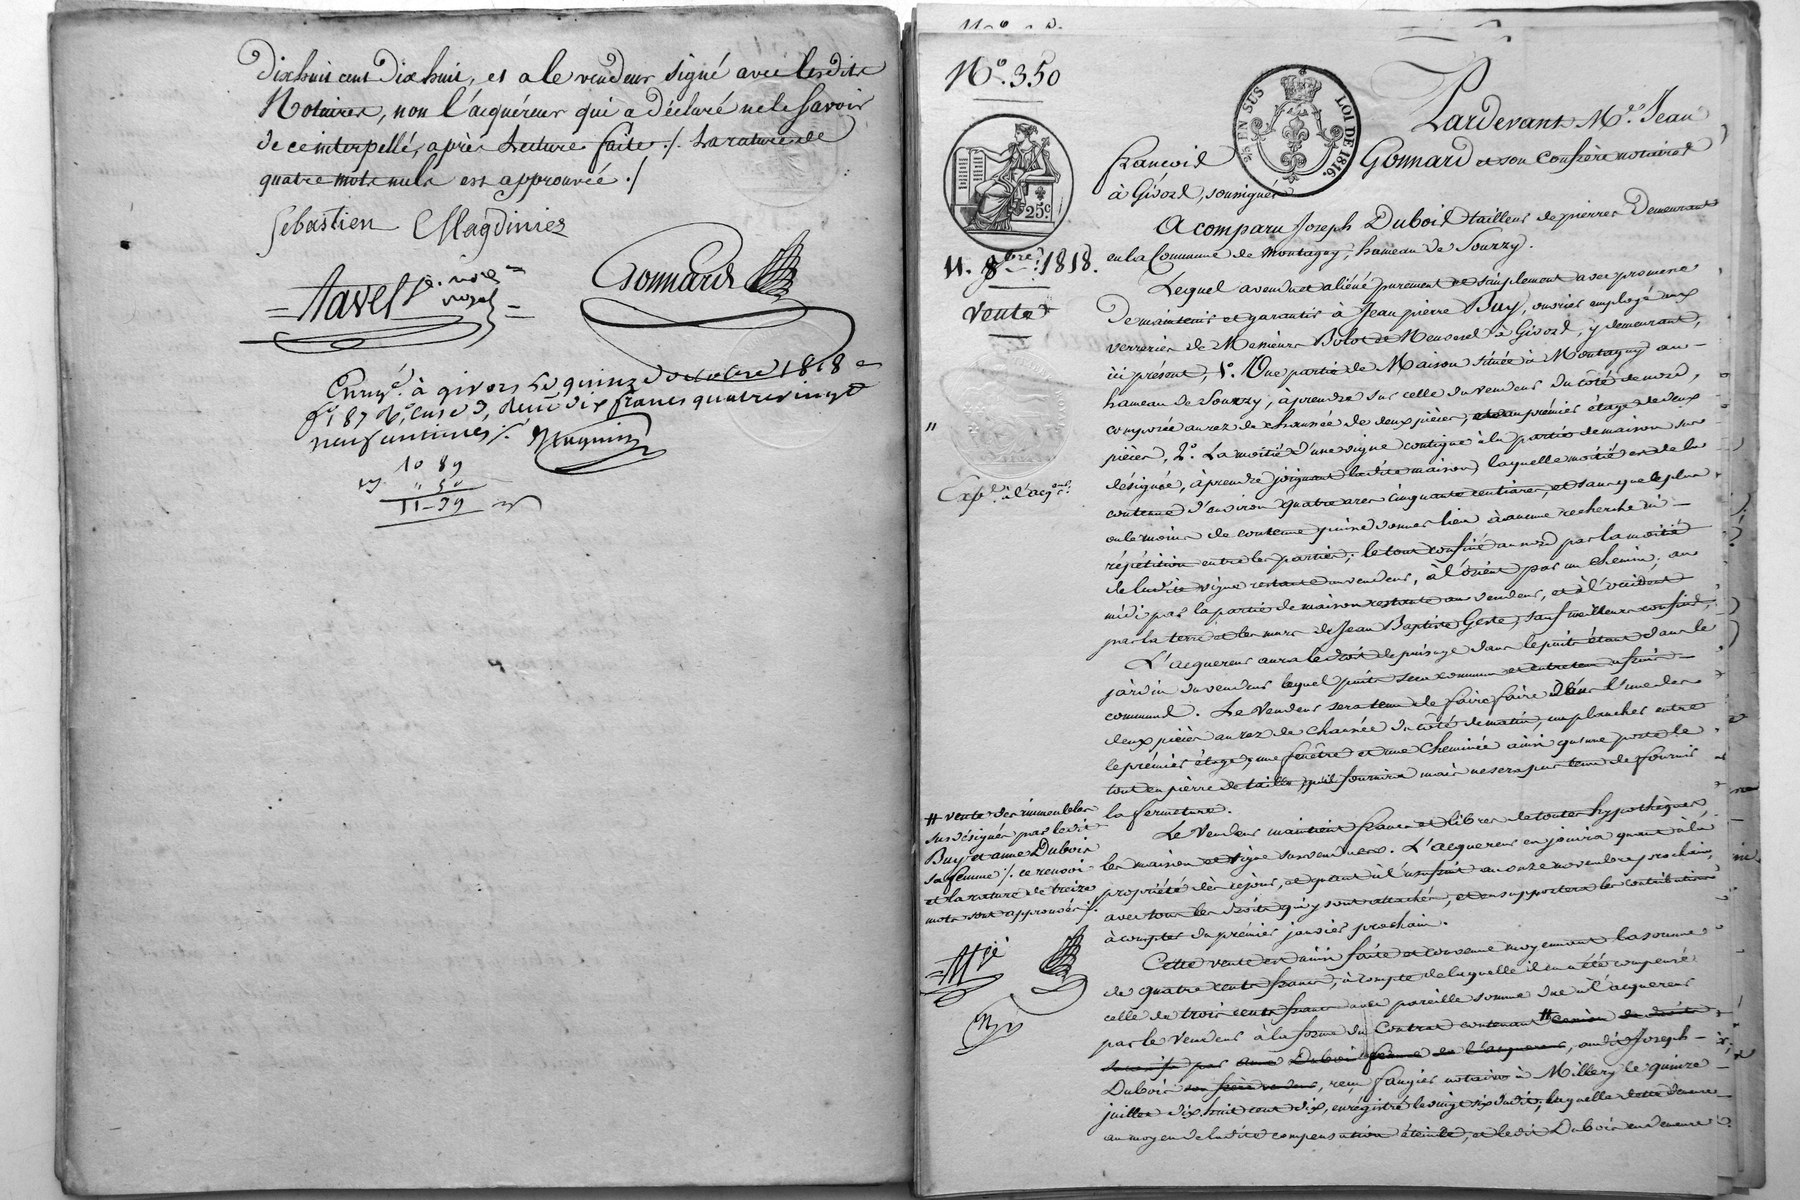 dixhuit cent dix huit, et a le vendeur signé avec lesdits
Notaires, non l'acquéreur qui a déclaré ne le savoir
de ce interpellé, après lecture faite ./. La rature de
quatre mots nuls est approuvée ./
Sebastien Magdinier
Favel
Gonnard
Enreg.é à givors le quinze octobre 1818
f.o 187 R.o case 3, Reçu dix francs quatrevingt
neuf centimes ./.
10 89
11-99
N.o 350
25 EN SUS
LOI DE 1816.
Pardevant M.e Jean
François Gonnard et son confrère notaires
à Givors, soussignés
25c
11. 8bre 1818.
Vente
A comparu Joseph Dubois tailleur de pierres demeurant
en la Commune de Montagny, hameau de Sourzy.
Lequel a vendu et aliéné purement et simplement avec promesse
de maintenir et garantir à Jean pierre Buy, ouvrier employé aux
verreries de Messieurs Bolot et Neuvesel à Givors, y demeurant,
ici présent, 1.o Une partie de Maison située à Montagny au-
hameau de Sourzy, à prendre sur celle du vendeur du côté de nord,
composée au rez de chaussée de deux pièces, et au premier étage de deux
pièces. 2.o La moitié d'une vigne contigue à la partie de maison sus
désignée, à prendre joignant ladite maison, laquelle moitié est de la
contenue d'environ quatre ares cinquante centiares, et sans que le plus
ou le moins de contenue puisse donner lieu à aucune recherche ni-
répétition entre les parties; le tout confiné au nord par la moitié
de ladite vigne restante au vendeur, à l'orient par un chemin, au
midi par la partie de maison restante au vendeur, et à l'occident
par la terre et les murs de Jean Baptiste Geste, sauf meilleurs confins.
Exp.on à l'acq.r
L'acquereur aura le droit de puisage dans le puits étant dans le
jardin du vendeur lequel puits sera commun et entretenu à frais
communs. Le Vendeur sera tenu de faire faire dans l'une des
deux pièces au rez de chaussée du côté de matin, un plancher entre
le premier étage, une fenêtre et une cheminée ainsi qu'une porte le
tout en pierre de taille, qu'il fournira mais ne sera pas tenu de fournir
la fermeture.
Le Vendeur maintient francs et libres de toutes hypothèques
les maison et vigne sus vendues. L'acquereur en jouira quant à la
propriété dès ce jour, et quant à l'usufruit au onze novembre prochain,
avec tous les droits qui y sont attachés, et en supportera les contributions
à compter du premier janvier prochain.
Cette vente est ainsi faite et convenue moyennant la somme
de quatre cents francs, à compte de laquelle il en a été compensé
celle de trois cents francs avec pareille somme due à l'acquereur
par le Vendeur à la forme du contrat contenant # cession de droits
successifs par anne Dubois femme de l'acquereur, audit Joseph-
Dubois son frère vendeur, reçu fangier notaire à Millery le quinze
juillet dix huit cent dix, enrégistré le vingt six dudit, laquelle dette demeure
au moyen de ladite compensation éteinte, et ledit Dubois en demeure
# vente des immeubles
sus désignés par ledit
Buy et anne Dubois
sa femme ./. ce renvoi
et la rature de treize
mots sont approuvés ./.